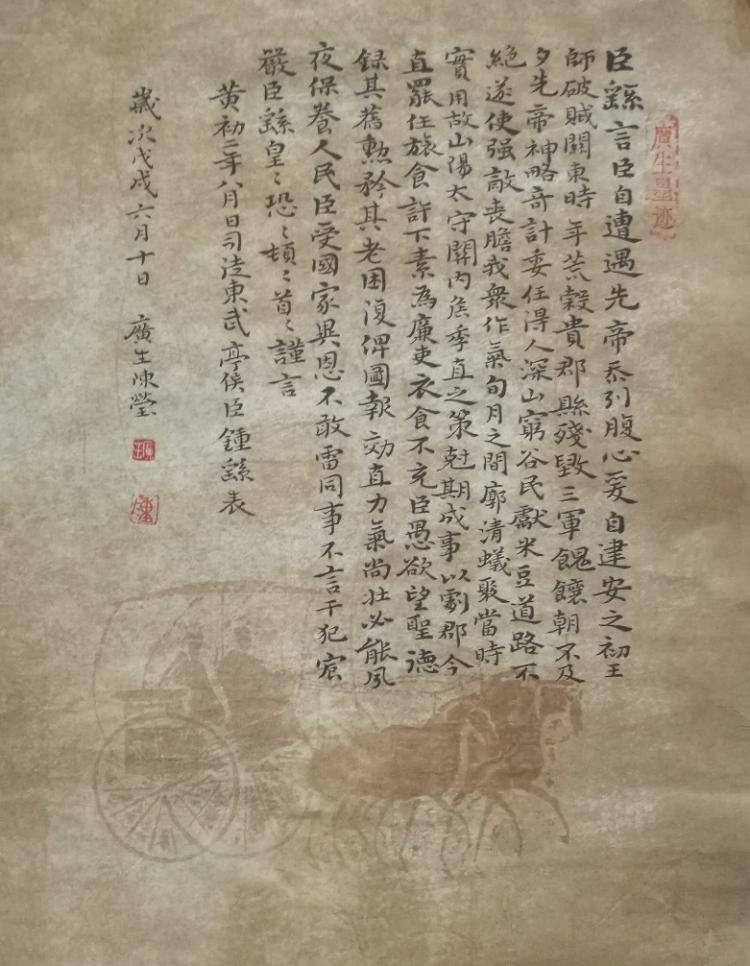 廣生墨迹
臣繇言臣自遭遇先帝忝列腹心爰自建安之初王
師破賊關東時年荒穀貴郡縣殘毀三軍餽饟朝不及
夕先帝神略奇計委任得人深山窮谷民獻米豆道路不
絕遂使强敵喪膽我衆作氣旬月之間廓清蟻聚當時
實用故山陽太守關内侯季直之策尅期成事以劇郡今
直罷任旅食許下素為廉吏衣食不充臣愚欲望聖德
録其舊勲矜其老困復俾圖報效直力氣尚壯必能夙
夜保養人民臣受國家異恩不敢雷同事不言干犯宸
嚴臣繇皇〻恐〻頓〻首〻謹言
黄初二年八月日司徒東武亭侯臣鍾繇表
歲次戊戌六月十日 廣生陳瑩